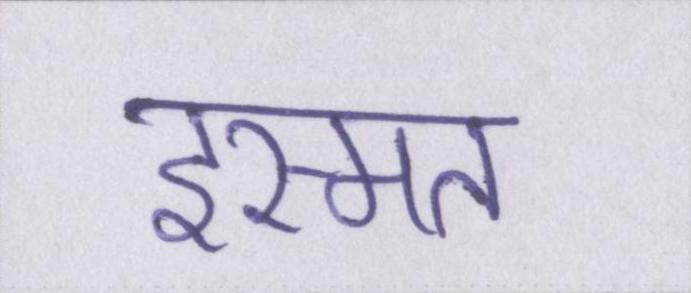 इस्मत